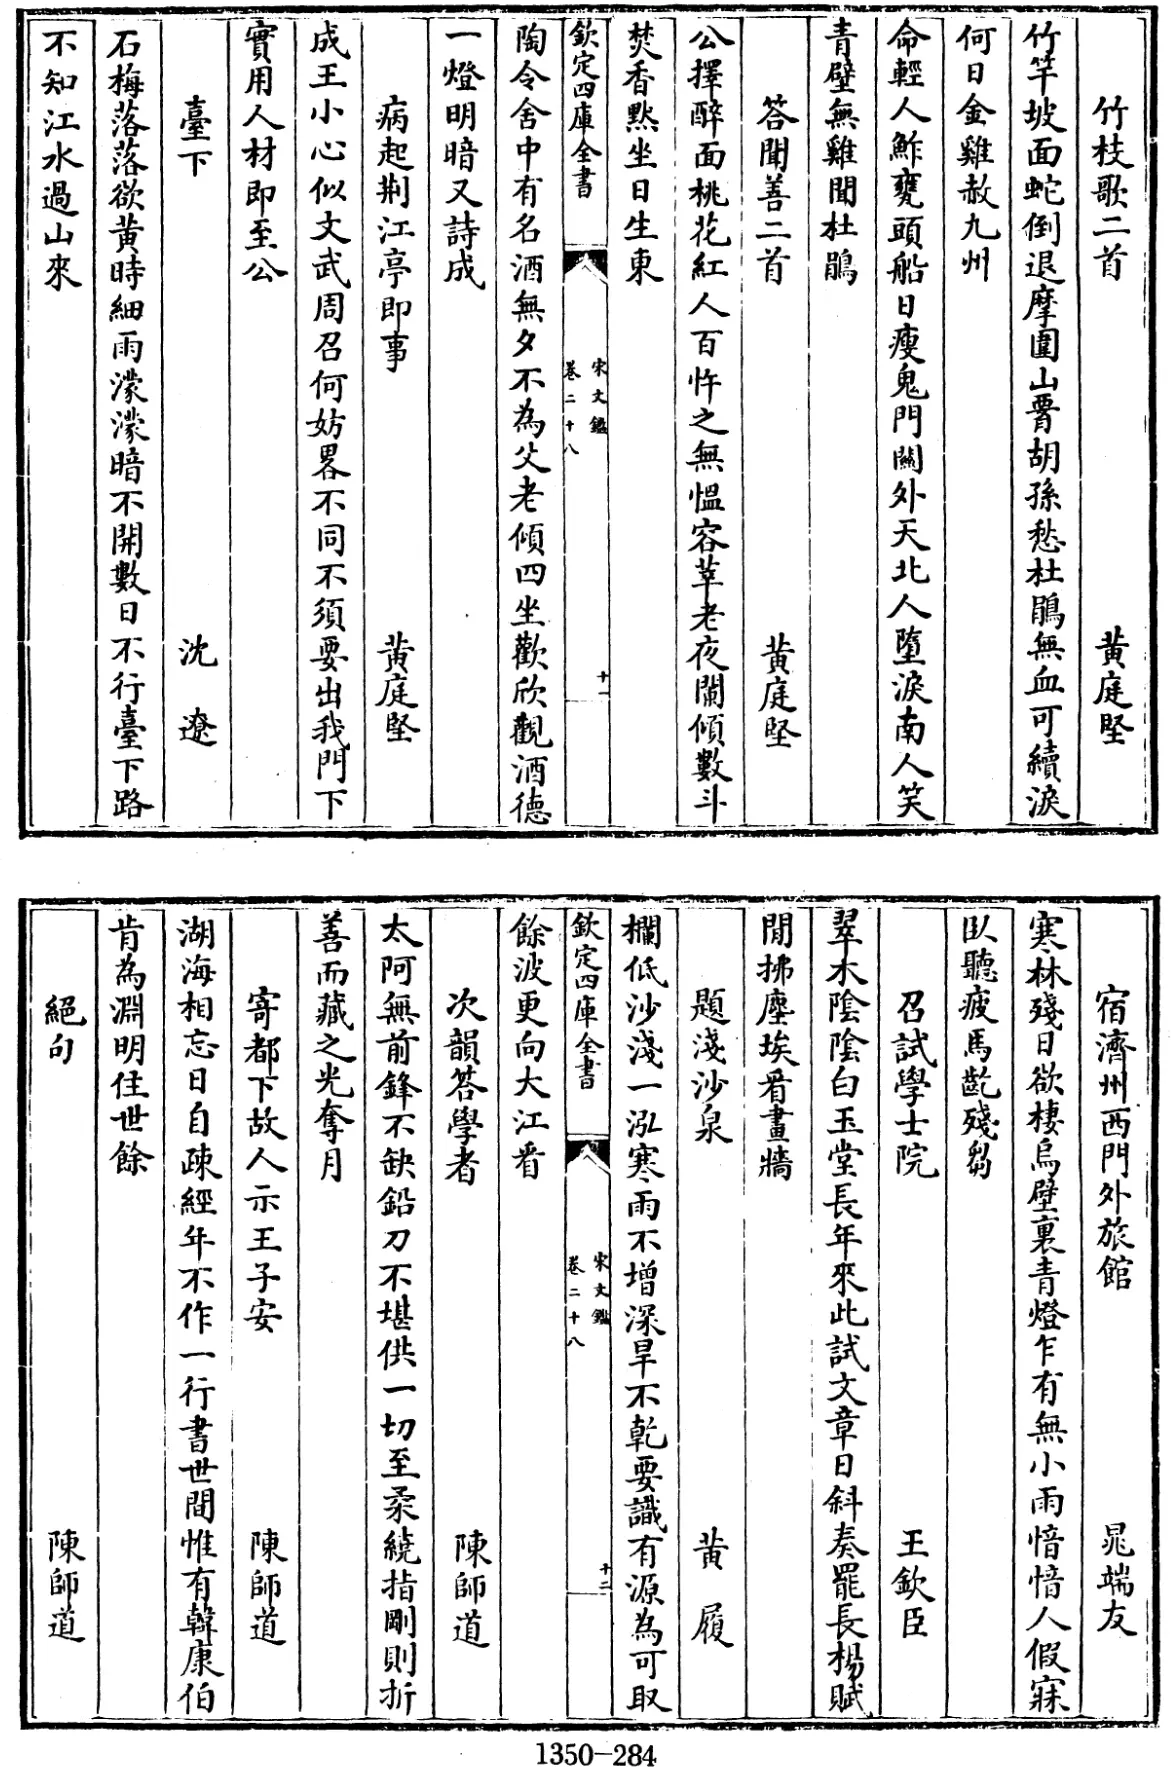 竹枝歌二首 黄庭堅
竹竿坡面蛇倒退摩圍山腰胡孫愁杜鵑無血可續淚
何日金雞赦九州
命輕人鮓甕頭船日瘦鬼門關外天北人墮淚南人笑
青壁無雞聞杜鵑
答聞善二首 黄庭堅
公擇醉面桃花紅人百忤之無愠容莘老夜闌傾數斗
焚香黙坐日生東
欽定四庫全書 宋文鑑 卷二十八 十一
陶令舎中有名酒無夕不為父老傾四坐歡欣觀酒德
一燈明暗又詩成
病起荆江亭即事 黄庭堅
成王小心似文武周召何妨畧不同不須要出我門下
實用人材即至公
臺下 沈遼
石梅落落欲黄時細雨濛濛暗不開數日不行臺下路
不知江水過山來
宿濟州西門外旅館 晁端友
寒林殘日欲棲烏壁裏青燈乍有無小雨愔愔人假寐
臥聽疲馬齕殘芻
召試學士院 王欽臣
翠木陰陰白玉堂長年來此試文章日斜奏罷長楊賦
閒拂塵埃看畫牆
題淺沙泉 黄履
欄低沙淺一泓寒雨不增深旱不乾要識有源為可取
欽定四庫全書 宋文鑑 卷二十八 十二
餘波更向大江看
次韻答學者 陳師道
太阿無前鋒不缺鉛刀不堪供一切至柔繞指剛則折
善而藏之光奪月
寄都下故人示王子安 陳師道
湖海相忘日自疎經年不作一行書世間惟有韓康伯
肯為淵明住世餘
絕句 陳師道
1350-284